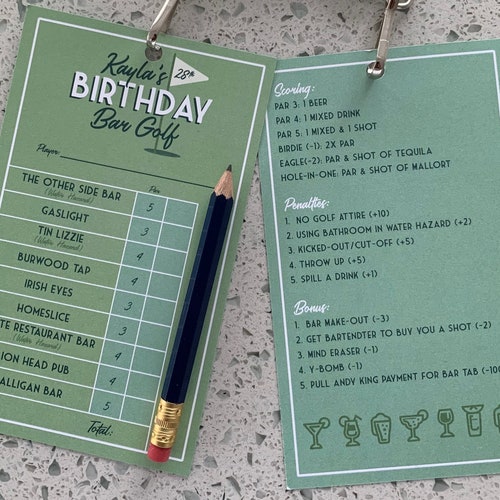 Kayla's
28th
BIRTHDAY
Bar Golf
Player:
Par
THE OTHER SIDE BAR 5
(Water Hazard)
GASLIGHT 3
TIN LIZZIE 3
(Water Hazard)
BURWOOD TAP 4
IRISH EYES 3
HOMESLICE 3
TE RESTAURANT BAR 4
(Water Hazard)
ION HEAD PUB 4
ALLIGAN BAR 5
Total:
Scoring:
PAR 3: 1 BEER
PAR 4: 1 MIXED DRINK
PAR 5: 1 MIXED & 1 SHOT
BIRDIE (-1): 2X PAR
EAGLE(-2): PAR & SHOT OF TEQUILA
HOLE-IN-ONE: PAR & SHOT OF MALLORT
Penalties:
1. NO GOLF ATTIRE (+10)
2. USING BATHROOM IN WATER HAZARD (+2)
3. KICKED-OUT/CUT-OFF (+5)
4. THROW UP (+5)
5. SPILL A DRINK (+1)
Bonus:
1. BAR MAKE-OUT (-3)
2. GET BARTENDTER TO BUY YOU A SHOT (-2)
3. MIND ERASER (-1)
4. Y-BOMB (-1)
5. PULL ANDY KING PAYMENT FOR BAR TAB (-100